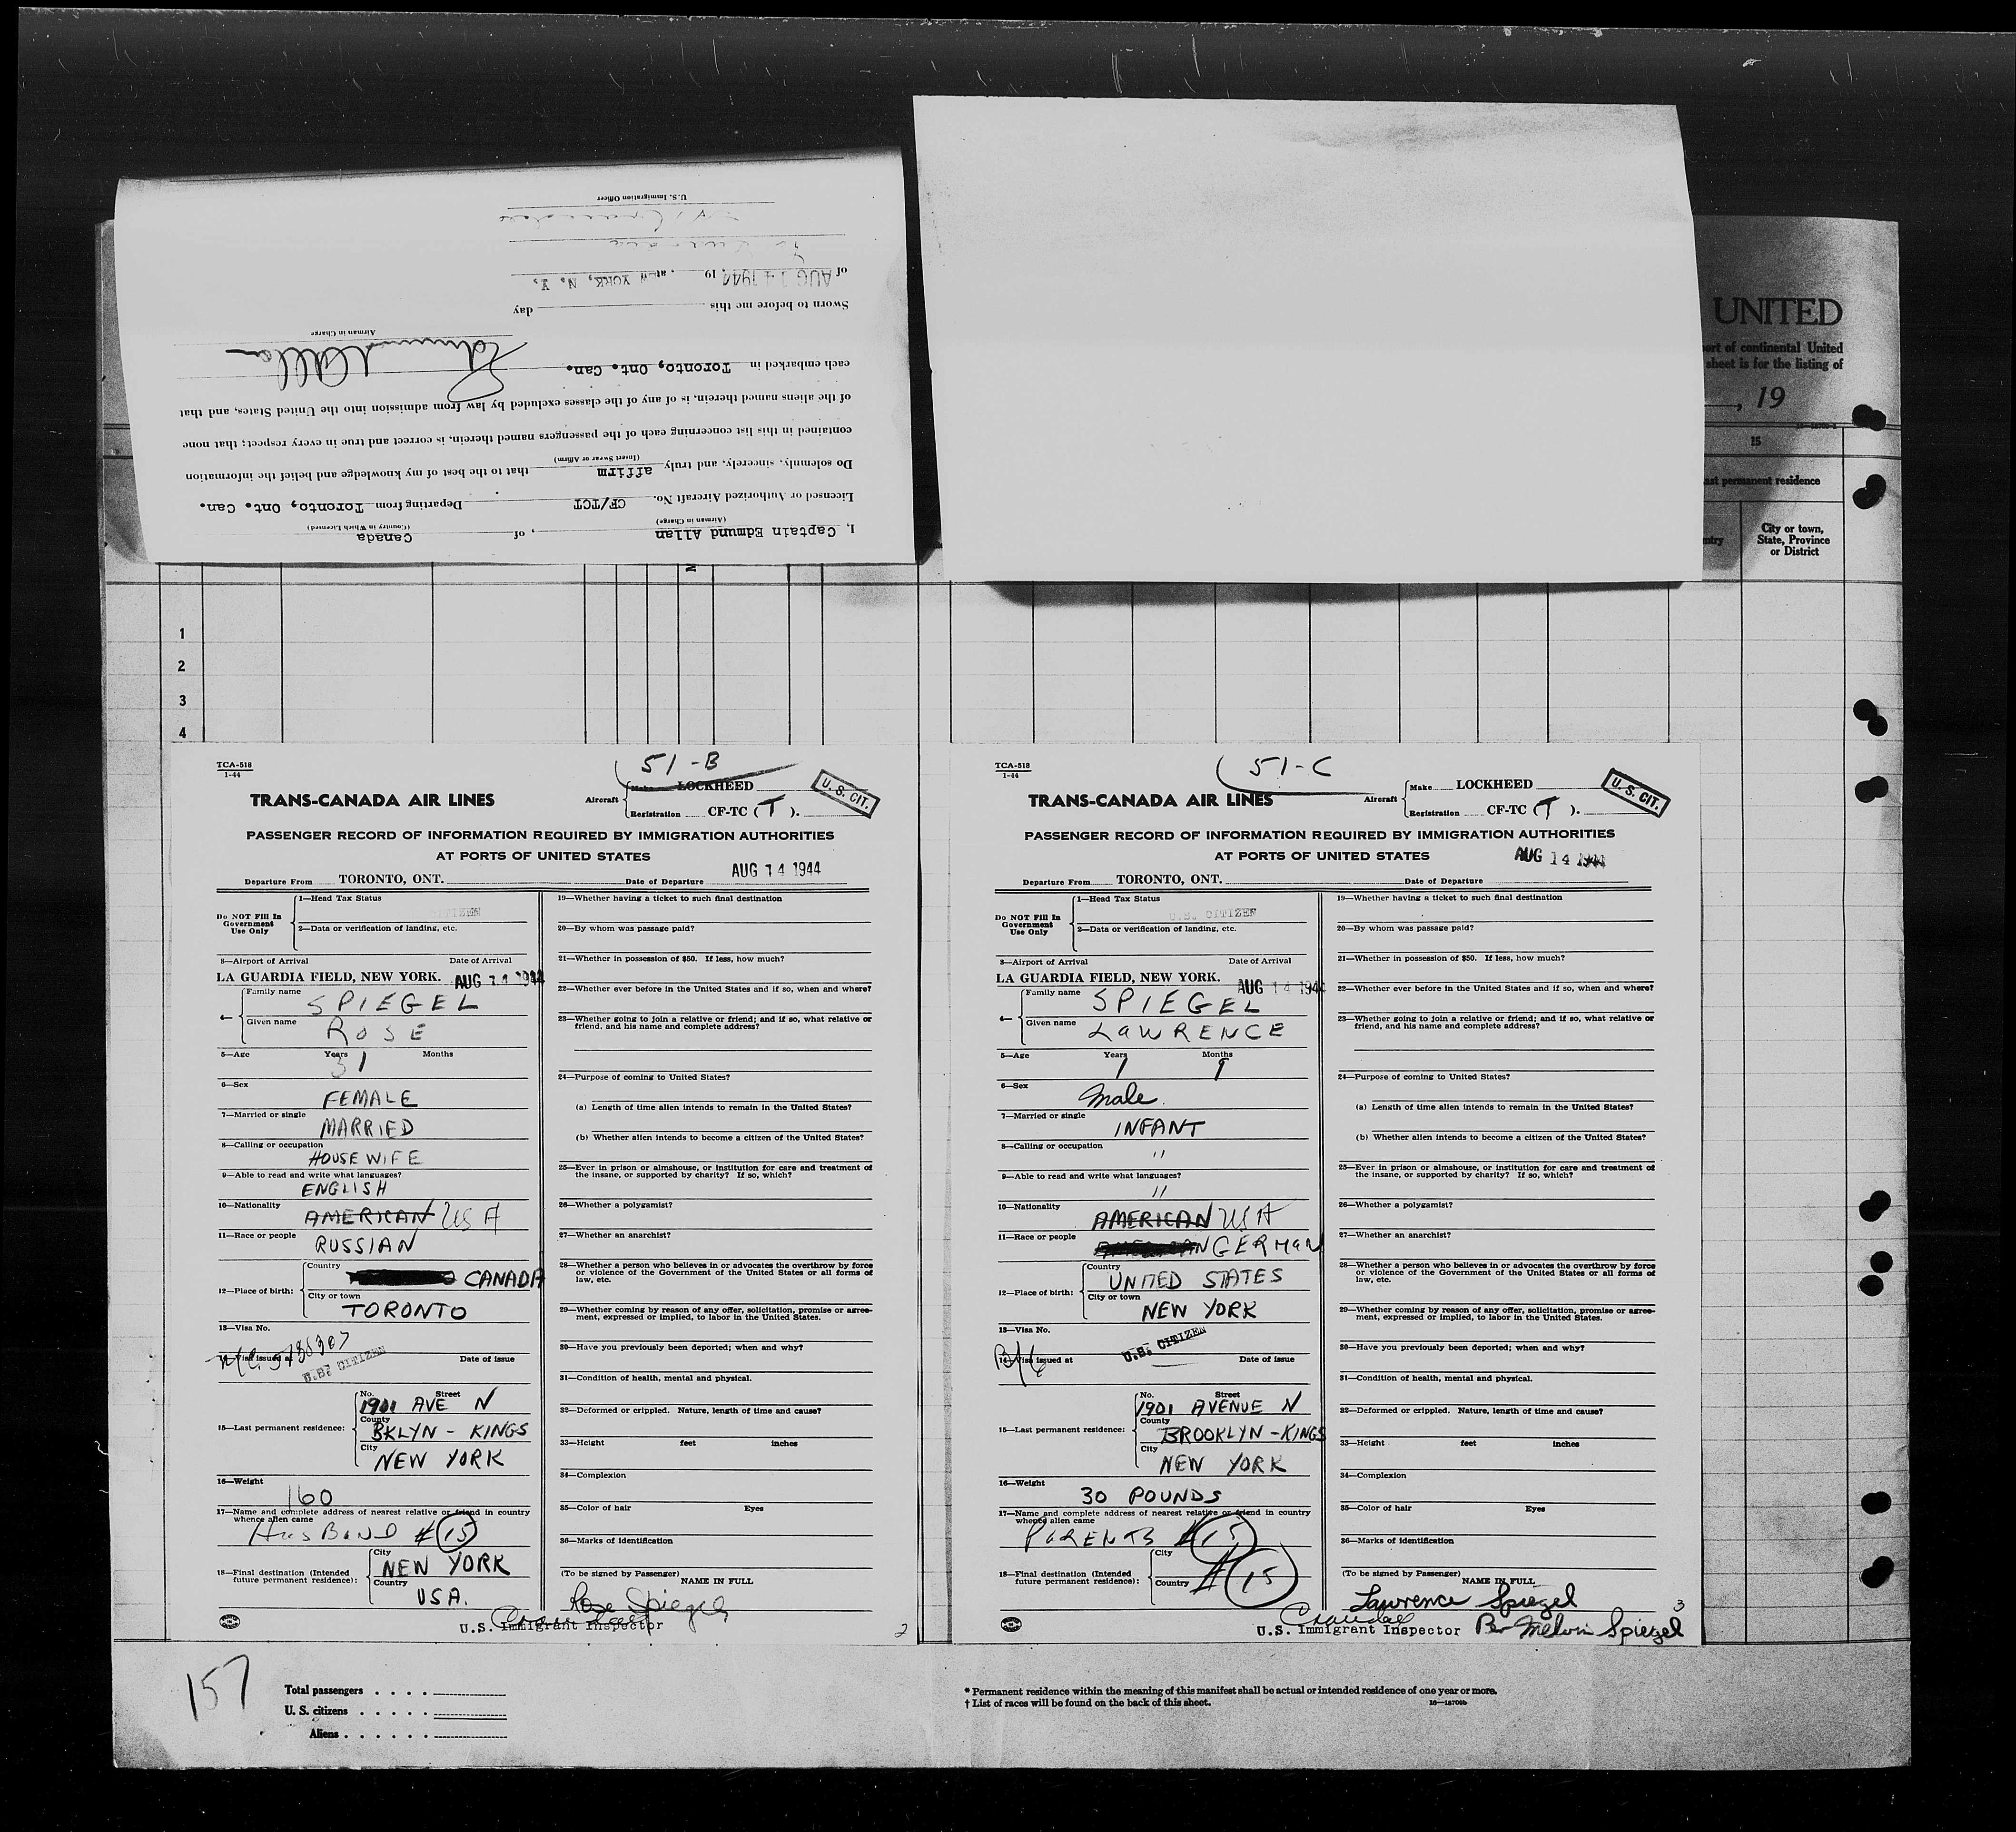 I, Captain Edmund Allan, of Canada
(Airman in Charge) (Country in Which Licensed)
Licensed or Authorized Aircraft No. CF/TCT Departing from Toronto, Ont. Can.
Do solemnly, sincerely, and truly affirm that to the best of my knowledge and belief the information
(Insert Swear or Affirm)
contained in this list concerning each of the passengers named therein, is correct and true in every respect; that none
of the aliens named therein, is of any of the classes excluded by law from admission into the United States, and that
each embarked in Toronto, Ont. Can.
Edmund Allan
Airman in Charge
Sworn to before me this day
of AUG 14 1944, 19 , at W YORK, N. Y.
U.S. Immigration Officer
UNITED
ort of continental United
sheet is for the listing of
, 19
15
ast permanent residence
ntry
City or town,
State, Province
or District
1
2
3
4
TCA-518
1-44
51-B
TRANS-CANADA AIR LINES
Aircraft Make LOCKHEED
Registration CF-TC (T).
U. S. CIT.
PASSENGER RECORD OF INFORMATION REQUIRED BY IMMIGRATION AUTHORITIES
AT PORTS OF UNITED STATES
AUG 14 1944
Departure From TORONTO, ONT. Date of Departure
Do NOT Fill In
Government
Use Only
1—Head Tax Status
TIZEN
2—Data or verification of landing, etc.
3—Airport of Arrival Date of Arrival
LA GUARDIA FIELD, NEW YORK. AUG 14 1944
4— Family name SPIEGEL
Given name ROSE
5—Age Years Months
31
6—Sex
FEMALE
7—Married or single
MARRIED
8—Calling or occupation
HOUSEWIFE
9—Able to read and write what languages?
ENGLISH
10—Nationality
AMERICAN USA
11—Race or people
RUSSIAN
12—Place of birth: Country CANADA
City or town
TORONTO
13—Visa No.
N/C 5735307
14—Visa issued at Date of issue
U.S. CITIZEN
15—Last permanent residence:
No. Street
1901 AVE N
County
BKLYN - KINGS
City
NEW YORK
16—Weight
160
17—Name and complete address of nearest relative or friend in country
whence alien came
HUSBAND #15
18—Final destination (Intended
future permanent residence):
City
NEW YORK
Country
USA.
19—Whether having a ticket to such final destination
20—By whom was passage paid?
21—Whether in possession of $50. If less, how much?
22—Whether ever before in the United States and if so, when and where?
23—Whether going to join a relative or friend; and if so, what relative or
friend, and his name and complete address?
24—Purpose of coming to United States?
(a) Length of time alien intends to remain in the United States?
(b) Whether alien intends to become a citizen of the United States?
25—Ever in prison or almshouse, or institution for care and treatment of
the insane, or supported by charity? If so, which?
26—Whether a polygamist?
27—Whether an anarchist?
28—Whether a person who believes in or advocates the overthrow by force
or violence of the Government of the United States or all forms of
law, etc.
29—Whether coming by reason of any offer, solicitation, promise or agree-
ment, expressed or implied, to labor in the United States.
30—Have you previously been deported; when and why?
31—Condition of health, mental and physical.
32—Deformed or crippled. Nature, length of time and cause?
33—Height feet inches
34—Complexion
35—Color of hair Eyes
36—Marks of identification
(To be signed by Passenger)
NAME IN FULL
Rose Spiegel
U.S. Immigrant Inspector
2
TCA-518
1-44
51-C
TRANS-CANADA AIR LINES
Aircraft Make LOCKHEED
Registration CF-TC (T).
U. S. CIT.
PASSENGER RECORD OF INFORMATION REQUIRED BY IMMIGRATION AUTHORITIES
AT PORTS OF UNITED STATES
AUG 14 1944
Departure From TORONTO, ONT. Date of Departure
Do NOT Fill In
Government
Use Only
1—Head Tax Status
U.S. CITIZEN
2—Data or verification of landing, etc.
3—Airport of Arrival Date of Arrival
LA GUARDIA FIELD, NEW YORK. AUG 14 1944
4— Family name SPIEGEL
Given name LAWRENCE
5—Age Years Months
1 9
6—Sex
Male.
7—Married or single
INFANT
8—Calling or occupation
"
9—Able to read and write what languages?
"
10—Nationality
AMERICAN USA
11—Race or people
AMERICAN GERMAN
12—Place of birth: Country
UNITED STATES
City or town
NEW YORK
13—Visa No.
U.S. CITIZEN
14—Visa issued at Date of issue
B/C
15—Last permanent residence:
No. Street
1901 AVENUE N
County
BROOKLYN - KINGS
City
NEW YORK
16—Weight
30 POUNDS
17—Name and complete address of nearest relative or friend in country
whence alien came
PARENTS #15
18—Final destination (Intended
future permanent residence):
City
Country
#15
19—Whether having a ticket to such final destination
20—By whom was passage paid?
21—Whether in possession of $50. If less, how much?
22—Whether ever before in the United States and if so, when and where?
23—Whether going to join a relative or friend; and if so, what relative or
friend, and his name and complete address?
24—Purpose of coming to United States?
(a) Length of time alien intends to remain in the United States?
(b) Whether alien intends to become a citizen of the United States?
25—Ever in prison or almshouse, or institution for care and treatment of
the insane, or supported by charity? If so, which?
26—Whether a polygamist?
27—Whether an anarchist?
28—Whether a person who believes in or advocates the overthrow by force
or violence of the Government of the United States or all forms of
law, etc.
29—Whether coming by reason of any offer, solicitation, promise or agree-
ment, expressed or implied, to labor in the United States.
30—Have you previously been deported; when and why?
31—Condition of health, mental and physical.
32—Deformed or crippled. Nature, length of time and cause?
33—Height feet inches
34—Complexion
35—Color of hair Eyes
36—Marks of identification
(To be signed by Passenger)
NAME IN FULL
Lawrence Spiegel
Crandall
U.S. Immigrant Inspector Per Melvin Spiegel
3
157
Total passengers . . . .
U. S. citizens . . . . .
Aliens . . . . . .
* Permanent residence within the meaning of this manifest shall be actual or intended residence of one year or more.
† List of races will be found on the back of this sheet.